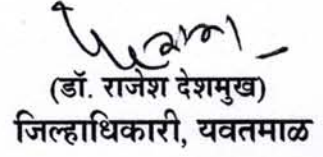 (डॉ. राजेश देशमुख)
जिल्हाधिकारी, यवतमाळ